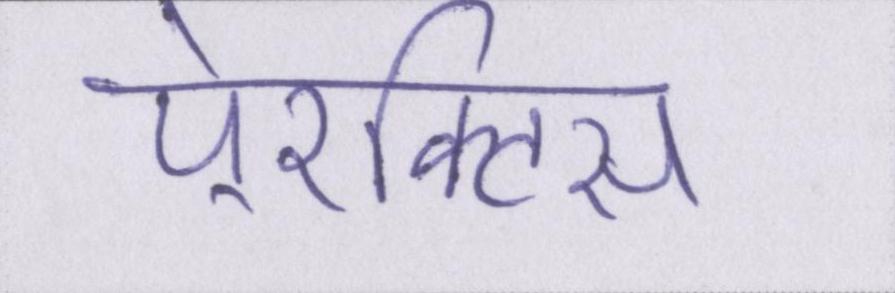 पे्रक्टिस